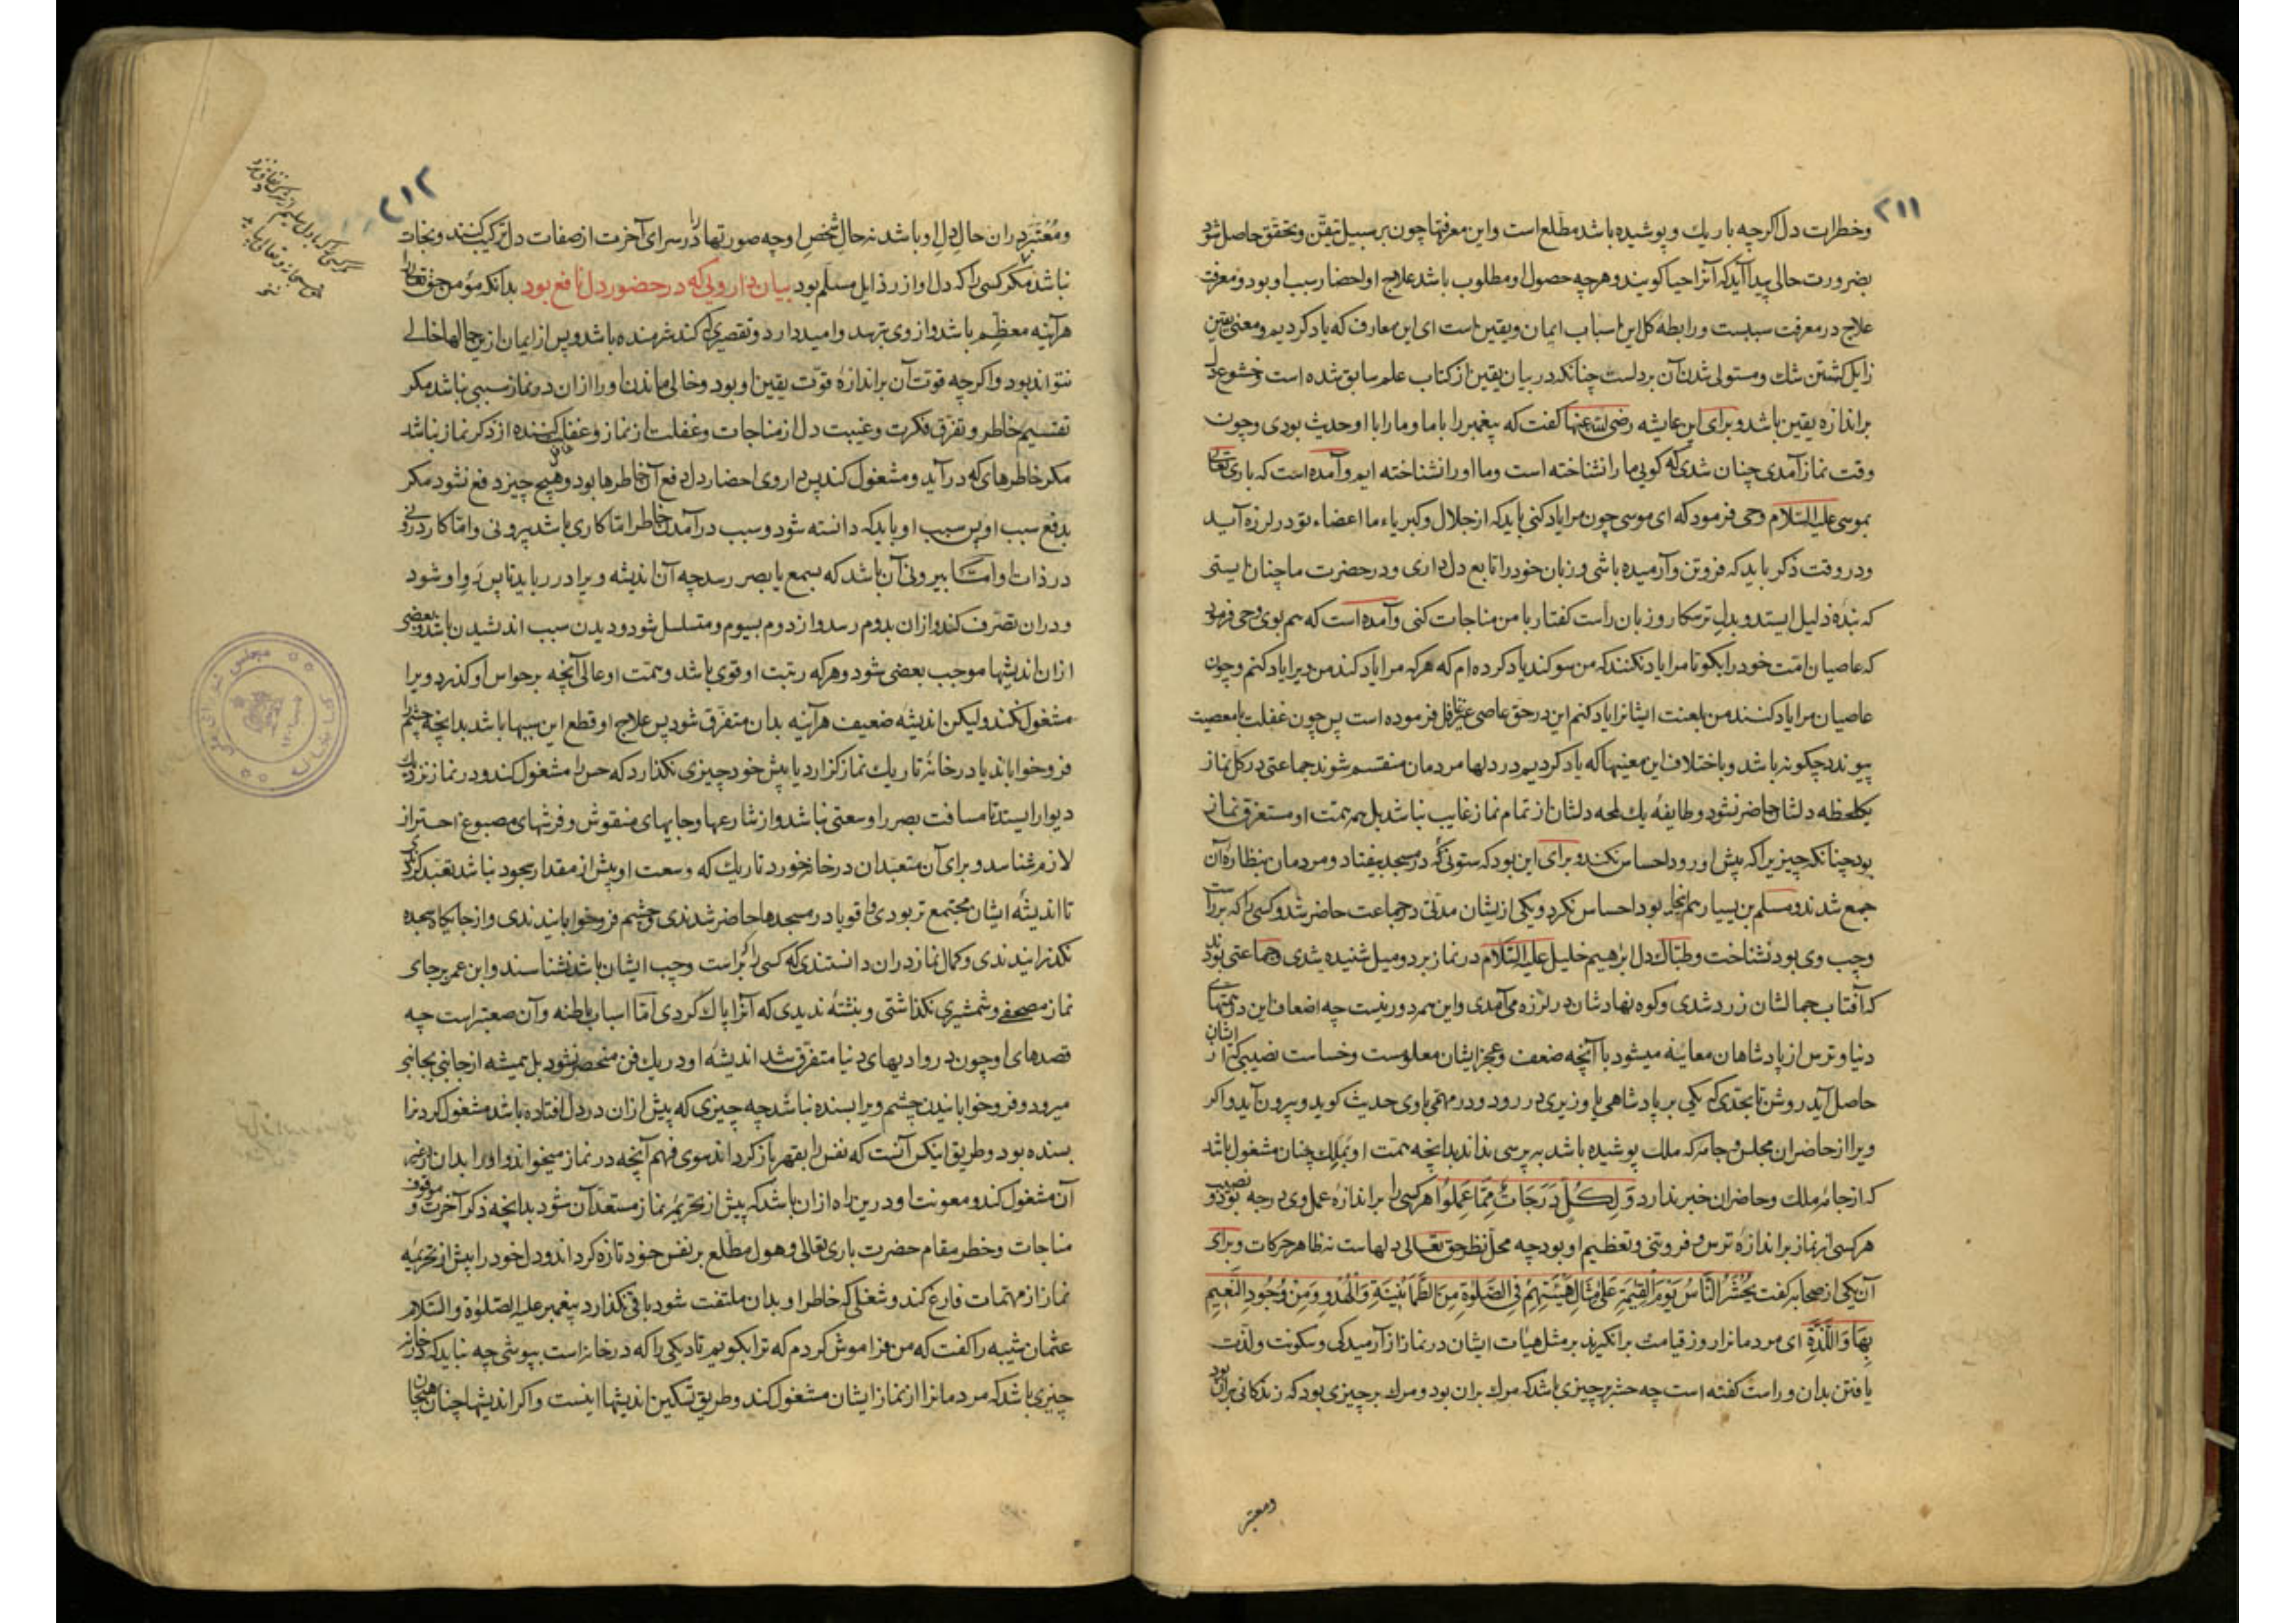 ۲۱۱
وخطرات دل اکرچه باریك وپوشیده باشد مطلع است واین معرفتها چون بر سبیل تیقّن وتحقق حاصل شود
بضرورت حالی پیدا آید که آنرا حیا کویند وهرچه حصول او مطلوب باشد علاج او احضار سبب او بود ومعرفت
علاج در معرفت سببست ورابطه کل این اسباب ایمان ویقین است ای این معارف که یاد کردیم ومعنی یقین
زایل کشتن شك ومستولی شدن آن بر دلست چنانکه در بیان یقین از کتاب علم سابق شده است وخشوع دل
براندازه یقین باشد وبرای این عایشه رضی الله عنها کفت که پیغمبر را باما ومارا با او حدیث بودی وچون
وقت نماز آمدی چنان شدی که کویی ما را نشناخته است وما اورا نشناخته ایم وآمده است که باری تعالی
بموسی علیه السّلام وحی فرمود که ای موسی چون مرا یاد کنی باید که از جلال وکبریاء ما اعضاء تو در لرزه آید
ودر وقت ذکر باید که فروتن وآرمیده باشی وزبان خود را تابع دل داری ودر حضرت ما چنان ایستی
که بنده ذلیل ایستد وبدل ترسکار وزبان راست کفتار با من مناجات کنی وآمده است که هم بوی وحی فرمود
که عاصیان امّت خود را بکو تا مرا یاد نکنند که من سوکند یاد کرده ام که هرکه مرا یاد کند من ویرا یاد کنم وچون
عاصیان مرا یاد کنند من بلعنت ایشانرا یاد کنم این در حق عاصی غیر غافل فرموده است پس چون غفلت با معصیت
پیوندد چکونه باشد وباختلاف این معنیها که یاد کردیم در دلها مردمان منقسم شوند جماعتی در کل نماز
یکلحظه دلشان حاضر نشود وطایفهٔ یك لمحه دلشان از تمام نماز غایب نباشد بل همه همّت او مستغرق نماز
بود چنانکه چیزیرا که پیش او رود احساس نکند وبرای این بود که ستونی که در مسجد بیفتاد ومردمان بنظاره آن
جمع شدند ومسلم بن یسیار هم آنجا بود احساس نکرد ویکی از یشان مدتی در جماعت حاضر شد وکسی را که بر راست
وچپ وی بود نشناخت وطپاك دل ابرهیم خلیل علیه السّلام در نماز بر دو میل شنیده شدی وجماعتی بودند
که آفتاب جمالشان زرد شدی وکوه نهادشان در لرزه می آمدی واین همه دور نیست چه اضعاف این در همتهای
دنیا وترس از پادشاهان معاینه میشود با آنچه ضعف وعجز ایشان معلومست وخساست نصیبی که از ایشان
حاصل آید روشن تا بحدی که یکی بر پادشاهی یا وزیری در رود ودر مهمّی باوی حدیث کوید وبیرون آید واکر
ویرا از حاضران مجلس وجامه که ملك پوشیده باشد بپرسی نداند بدانچه همّت او بملك چنان مشغول باشد
که از جامهٔ ملك وحاضران خبر ندارد وَلِكُلٍّ دَرَجَاتٌ مِّمَّا عَمِلُوا هرکسی را براندازهٔ عمل وی درجه بود ونصیب
هرکسی از نماز براندازهٔ ترس وفروتنی وتعظیم او بود چه محل نظر حق تعالی دلهاست نه ظاهر حرکات وبرای
آن یکی از صحابه کفت يُحْشَرُ النَّاسُ يَوْمَ القِيٰمَةِ عَلىٰ مِثَالِ هَيْئَتِهِمْ فِي الصَّلوٰةِ مِنَ الطُّمَأْنِينَةِ وَالهُدُوِّ وَمِنْ وُجُودِ النَّعِيمِ
بِهَا وَاللَّذَّةِ ای مردمانرا روز قیامت برانکیزند بر مثل هیات ایشان در نماز از آرمیدکی وسکونت ولذّت
یافتن بدان وراست کفته است چه حشر بر چیزی باشد که مرك بران بود ومرك بر چیزی بود که زندکانی بران بود
ومعتبر
۲۱۲
ومُعْتَبَر دران حال دل او باشد نه حال شخص او چه صورتها را در سرای آخرت از صفات دل ترکیب کنند ونجات
نباشد مکر کسی را که دل او از رذایل مسلّم بود بیان دارویی که در حضور دل نافع بود بدانکه مؤمن حق تعالی را
هرآینه معظّم باشد واز وی بترسد وامید دارد وتقصیری که کند شرمنده باشد وپس از ایمان از ین حالها خالی
نتواند بود واکرچه قوّت آن براندازهٔ قوّت یقین او بود وخالی ماندن او را از ان در نماز سببی نباشد مکر
تقسیم خاطر وتفرّق فکرت وغیبت دل از مناجات وغفلت از نماز وغافل کننده از ذکر نماز نباشد
مکر خاطرهای که درآید ومشغول کند پس داروی احضار دل دفع آن خاطرها بود وهیچ چیز دفع نشود مکر
بدفع سبب او پس سبب او باید که دانسته شود وسبب درآمدن خاطر امّا کاری باشد بیرونی وامّا کار درونی
در ذات او امّا بیرونی آن باشد که بسمع یا بصر رسد چه آن اندیشه ویرا در رباید تا پس رَوِ او شود
ودران تصّرف کند واز ان بدوم رسد واز دوم بسیوم ومتسلسل شود ودیدن سبب اندیشیدن باشد وبعضی
از ان اندیشها موجب بعضی شود وهرکه رتبت او قوی باشد وهمّت او عالی آنچه بر حواس او کذرد ویرا
مشغول نکند ولیکن اندیشهٔ ضعیف هرآینه بدان متفرّق شود پس علاج او قطع این سببها باشد بدانچه چشم را
فرو خواباند یا در خانهٔ تاریك نماز کزارد یا پیش خود چیزی نکذارد که حس را مشغول کند ودر نماز نزدیك
دیوار ایستد تا مسافت بصر را وسعتی نباشد واز شارعها وجایهای منقوش وفرشهای مصبوغ احتراز
لازم شناسد وبرای آن متعبّدان در خانهٔ خورد تاریك که وسعت او بیش از مقدار سجود نباشد تعبّد کردندی
تا اندیشهٔ ایشان مجتمع تر بودی واقویا در مسجدها حاضر شدندی وچشم فرو خوابانیدندی واز جایکاه سجده
نکذرانیدندی وکمال نماز دران دانستندی که کسی را که بر راست وچپ ایشان باشد نشناسند وابن عمر بر جای
نماز مصحفی وشمشیری نکذاشتی ونبشتهٔ ندیدی که آنرا پاك کردی امّا اسباب باطنه وآن صعبتر است چه
قصدهای او چون در وادیهای دنیا متفرّق شد اندیشهٔ او در یك فن منحصر نشود بل همیشه از جانبی بجانبی
میرود وفرو خوابانیدن چشم ویرا بسنده نباشد چه چیزی که پیش از ان در دل افتاده باشد مشغول کردنرا
بسنده بود وطریق اینکس آنست که نفس را بقهر باز کرداند سوی فهم آنچه در نماز میخواند واورا بدان از غیر
آن مشغول کند ومعونت او درین راه از ان باشد که پیش از تحریمهٔ نماز مستعد آن شود بدانچه ذکر آخرت وموقوف
مناجات وخطر مقام حضرت باری تعالی وهول مطّلع بر نفس خود تازه کرداند ودل خود را پیش از تحریمهٔ
نماز از مهمّات فارغ کند وشغلی که خاطر او بدان ملتفت شود باقی نکذارد پیغمبر علیه الصّلوٰة والسّلام
عثمان شیبه را کفت که من فراموش کردم که ترا بکویم تا دیکی را که در خانه است بپوشی چه نباید که در خانه
چیزی باشد که مردمانرا از نماز ایشان مشغول کند وطریق تسکین اندیشها اینست واکر اندیشها چنان هیجان